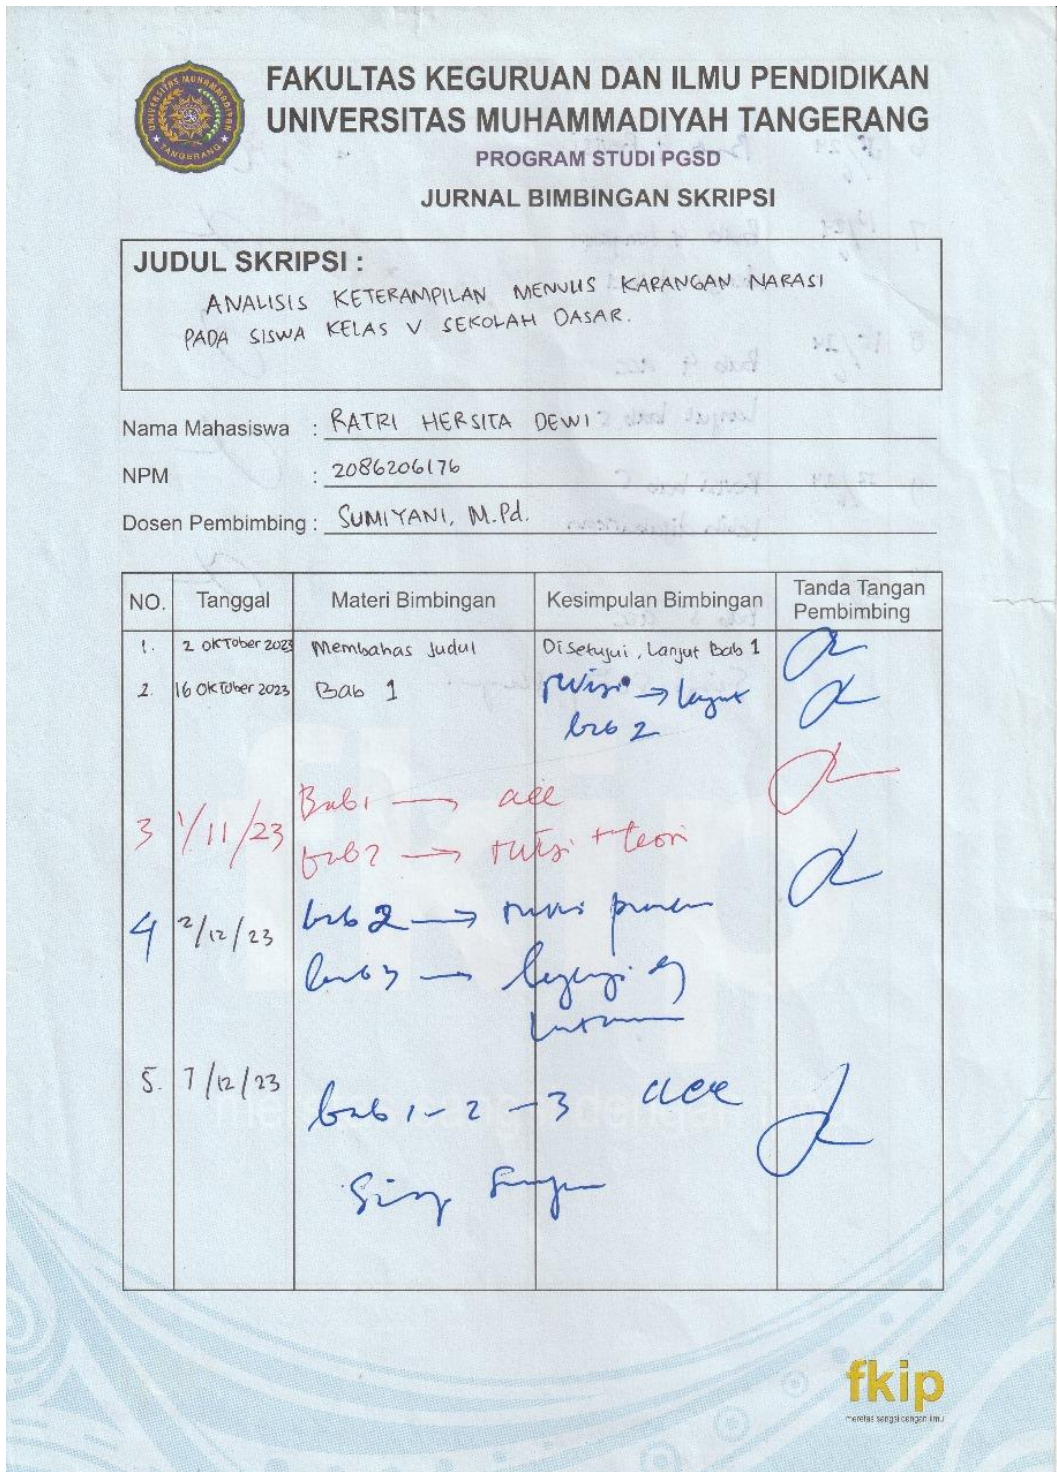 UNIVERSITAS MUHAMMADIYAH
TANGERANG
FAKULTAS KEGURUAN DAN ILMU PENDIDIKAN
UNIVERSITAS MUHAMMADIYAH TANGERANG
PROGRAM STUDI PGSD
JURNAL BIMBINGAN SKRIPSI
JUDUL SKRIPSI :
ANALISIS KETERAMPILAN MENULIS KARANGAN NARASI
PADA SISWA KELAS V SEKOLAH DASAR.
Nama Mahasiswa : RATRI HERSITA DEWI
NPM : 2086206176
Dosen Pembimbing : SUMIYANI, M.Pd.
NO. Tanggal Materi Bimbingan Kesimpulan Bimbingan Tanda Tangan Pembimbing
1. 2 OKTober 2023 Membahas Judul Disetujui, Lanjut Bab 1
2. 16 OKTober 2023 Bab 1 revisi → lanjut
bab 2
Bab 1 → acc
3 1/11/23
bab 2 → revisi + teori
4 2/12/23 bab 2 → revisi
bab 3 →
5. 7/12/23 bab 1 - 2 - 3 acc
fkip